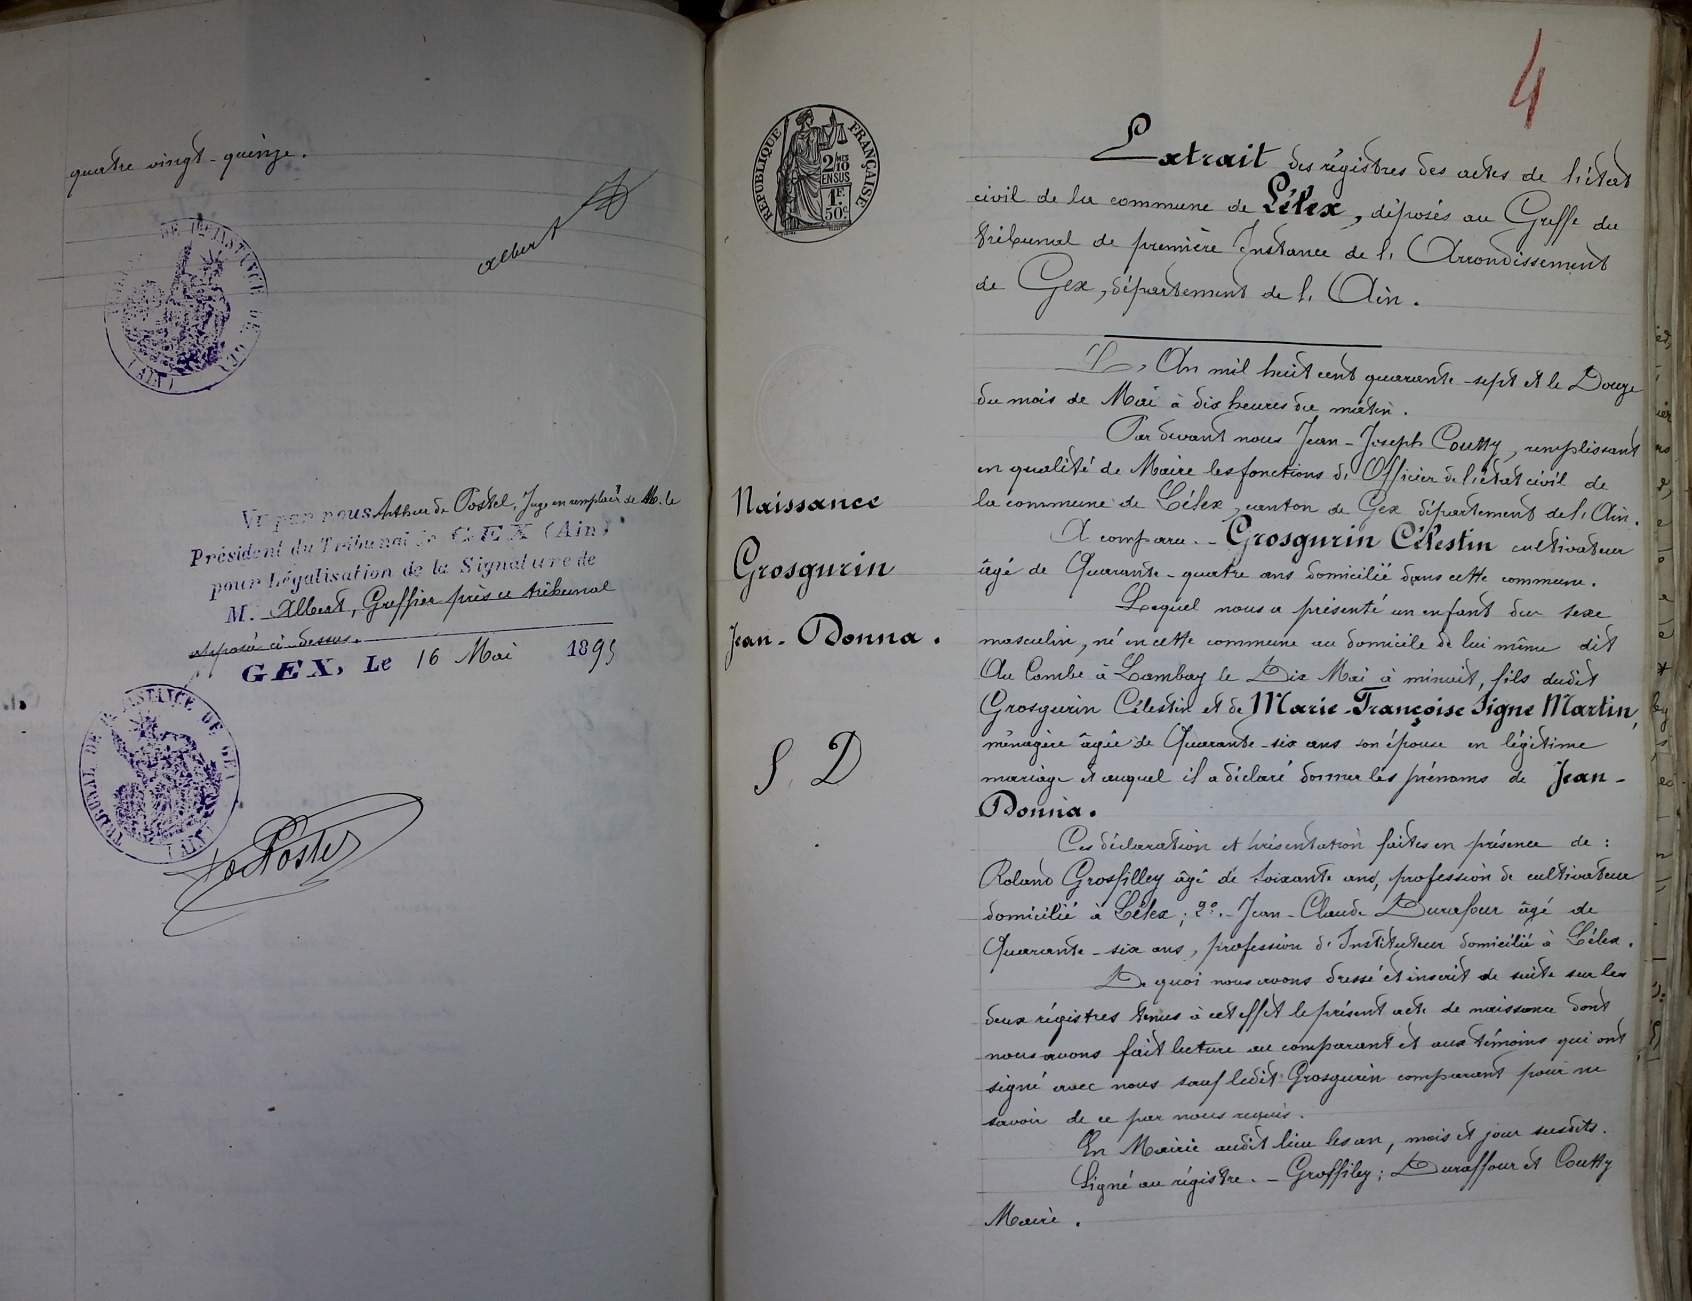 quatre vingt-quinze.
Albert
DE 1ère INSTANCE DE GEX
(AIN)
Vu par nous Arthur de Postel, Juge en remplact de M. le
Président du Tribunal de GEX (Ain)
pour Légalisation de la Signature de
M. Albert, Greffier près ce tribunal
apposée ci-dessus.
GEX, Le 16 Mai 1895
TRIBUNAL DE INSTANCE DE GEX
(AIN)
de Postel
4
REPUBLIQUE FRANÇAISE
2/10
EN SUS
1F.
50c
Extrait des régistres des actes de l'état
civil de la commune de Lélex, déposés au Greffe du
tribunal de première Instance de l'Arrondissement
de Gex, département de l'Ain.
Naissance
Grosgurin
Jean-Donna.
S. D
L'An mil huit cent quarante-sept et le Douze
du mois de Mai à dix heures du matin.
Par devant nous Jean-Joseph Coutty, remplissant
en qualité de Maire les fonctions d'Officier de l'état civil de
la commune de Lélex, canton de Gex département de l'Ain.
A comparu.- Grosgurin Célestin cultivateur
âgé de Quarante-quatre ans domicilié dans cette commune.
Lequel nous a présenté un enfant du sexe
masculin, né en cette commune au domicile de lui même dit
Au Combe à Lambay le Dix Mai à minuit, fils dudit
Grosgurin Célestin et de Marie-Françoise Signe Martin,
ménagère âgée de Quarante-six ans son épouse en légitime
mariage et auquel il a déclaré donner les prénoms de Jean-
Donna.
Ces déclaration et présentation faites en présence de :
Roland Grosfilley âgé de soixante ans, profession de cultivateur
domicilié à Lélex ; 2º.- Jean-Claude Durafour âgé de
Quarante-six ans, profession d'Instituteur domicilié à Lélex.
De quoi nous avons dressé et inscrit de suite sur les
deux régistres tenus à cet effet le présent acte de naissance dont
nous avons fait lecture au comparant et aux témoins qui ont
signé avec nous sauf ledit Grosgurin comparant pour ne
savoir de ce par nous requis.
En Mairie audit lieu les an, mois et jour susdits.
Signé au régistre.- Groffiley ; Duraffour et Coutty
Maire.